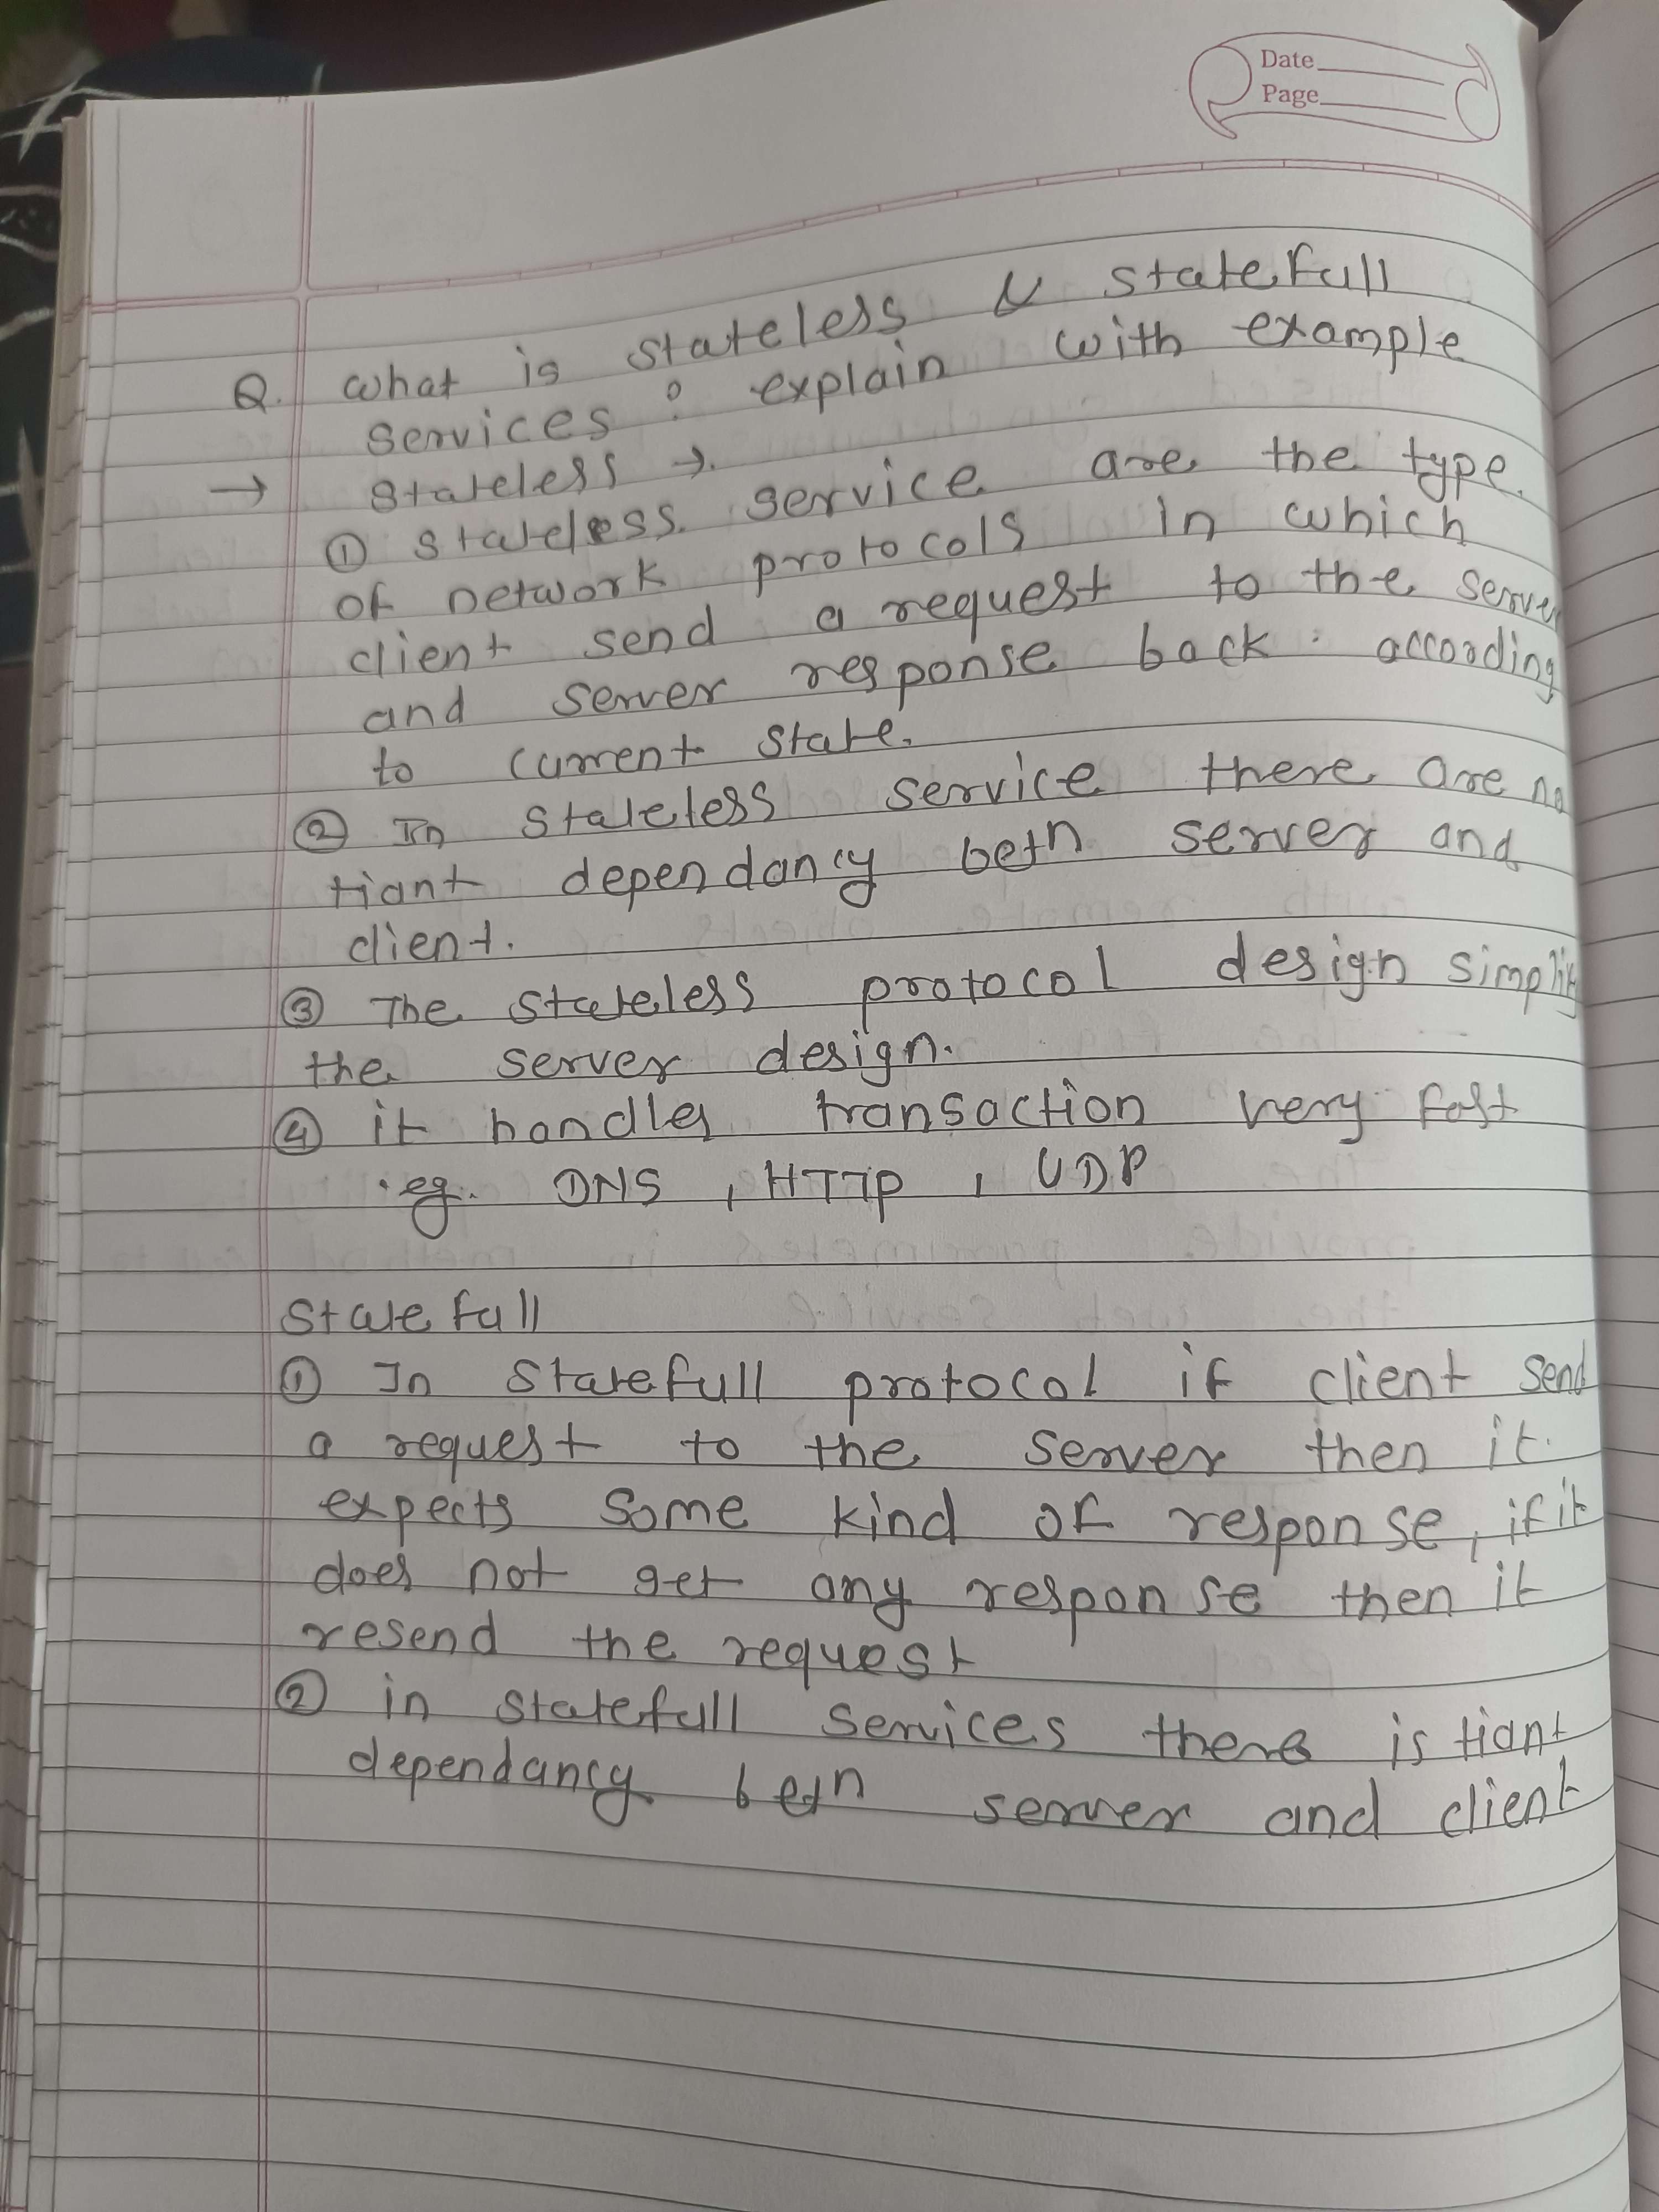 Date
Page
Q. what is stateless & statefull
services : explain with example
→ stateless →.
① stateless service are the type
of network protocols in which
client send a request to the server
and server response back according
to current state.
② In stateless service there are no
tiant dependancy betn server and
client.
③ The stateless protocol design simplify
the server design.
④ it handles transaction very fast
eg. DNS , HTTP , UDP
Statefull
① In statefull protocol if client send
a request to the server then it
expects some kind of response, if it
does not get any response then it
resend the request
② in statefull services there is tiant
dependancy betn server and client